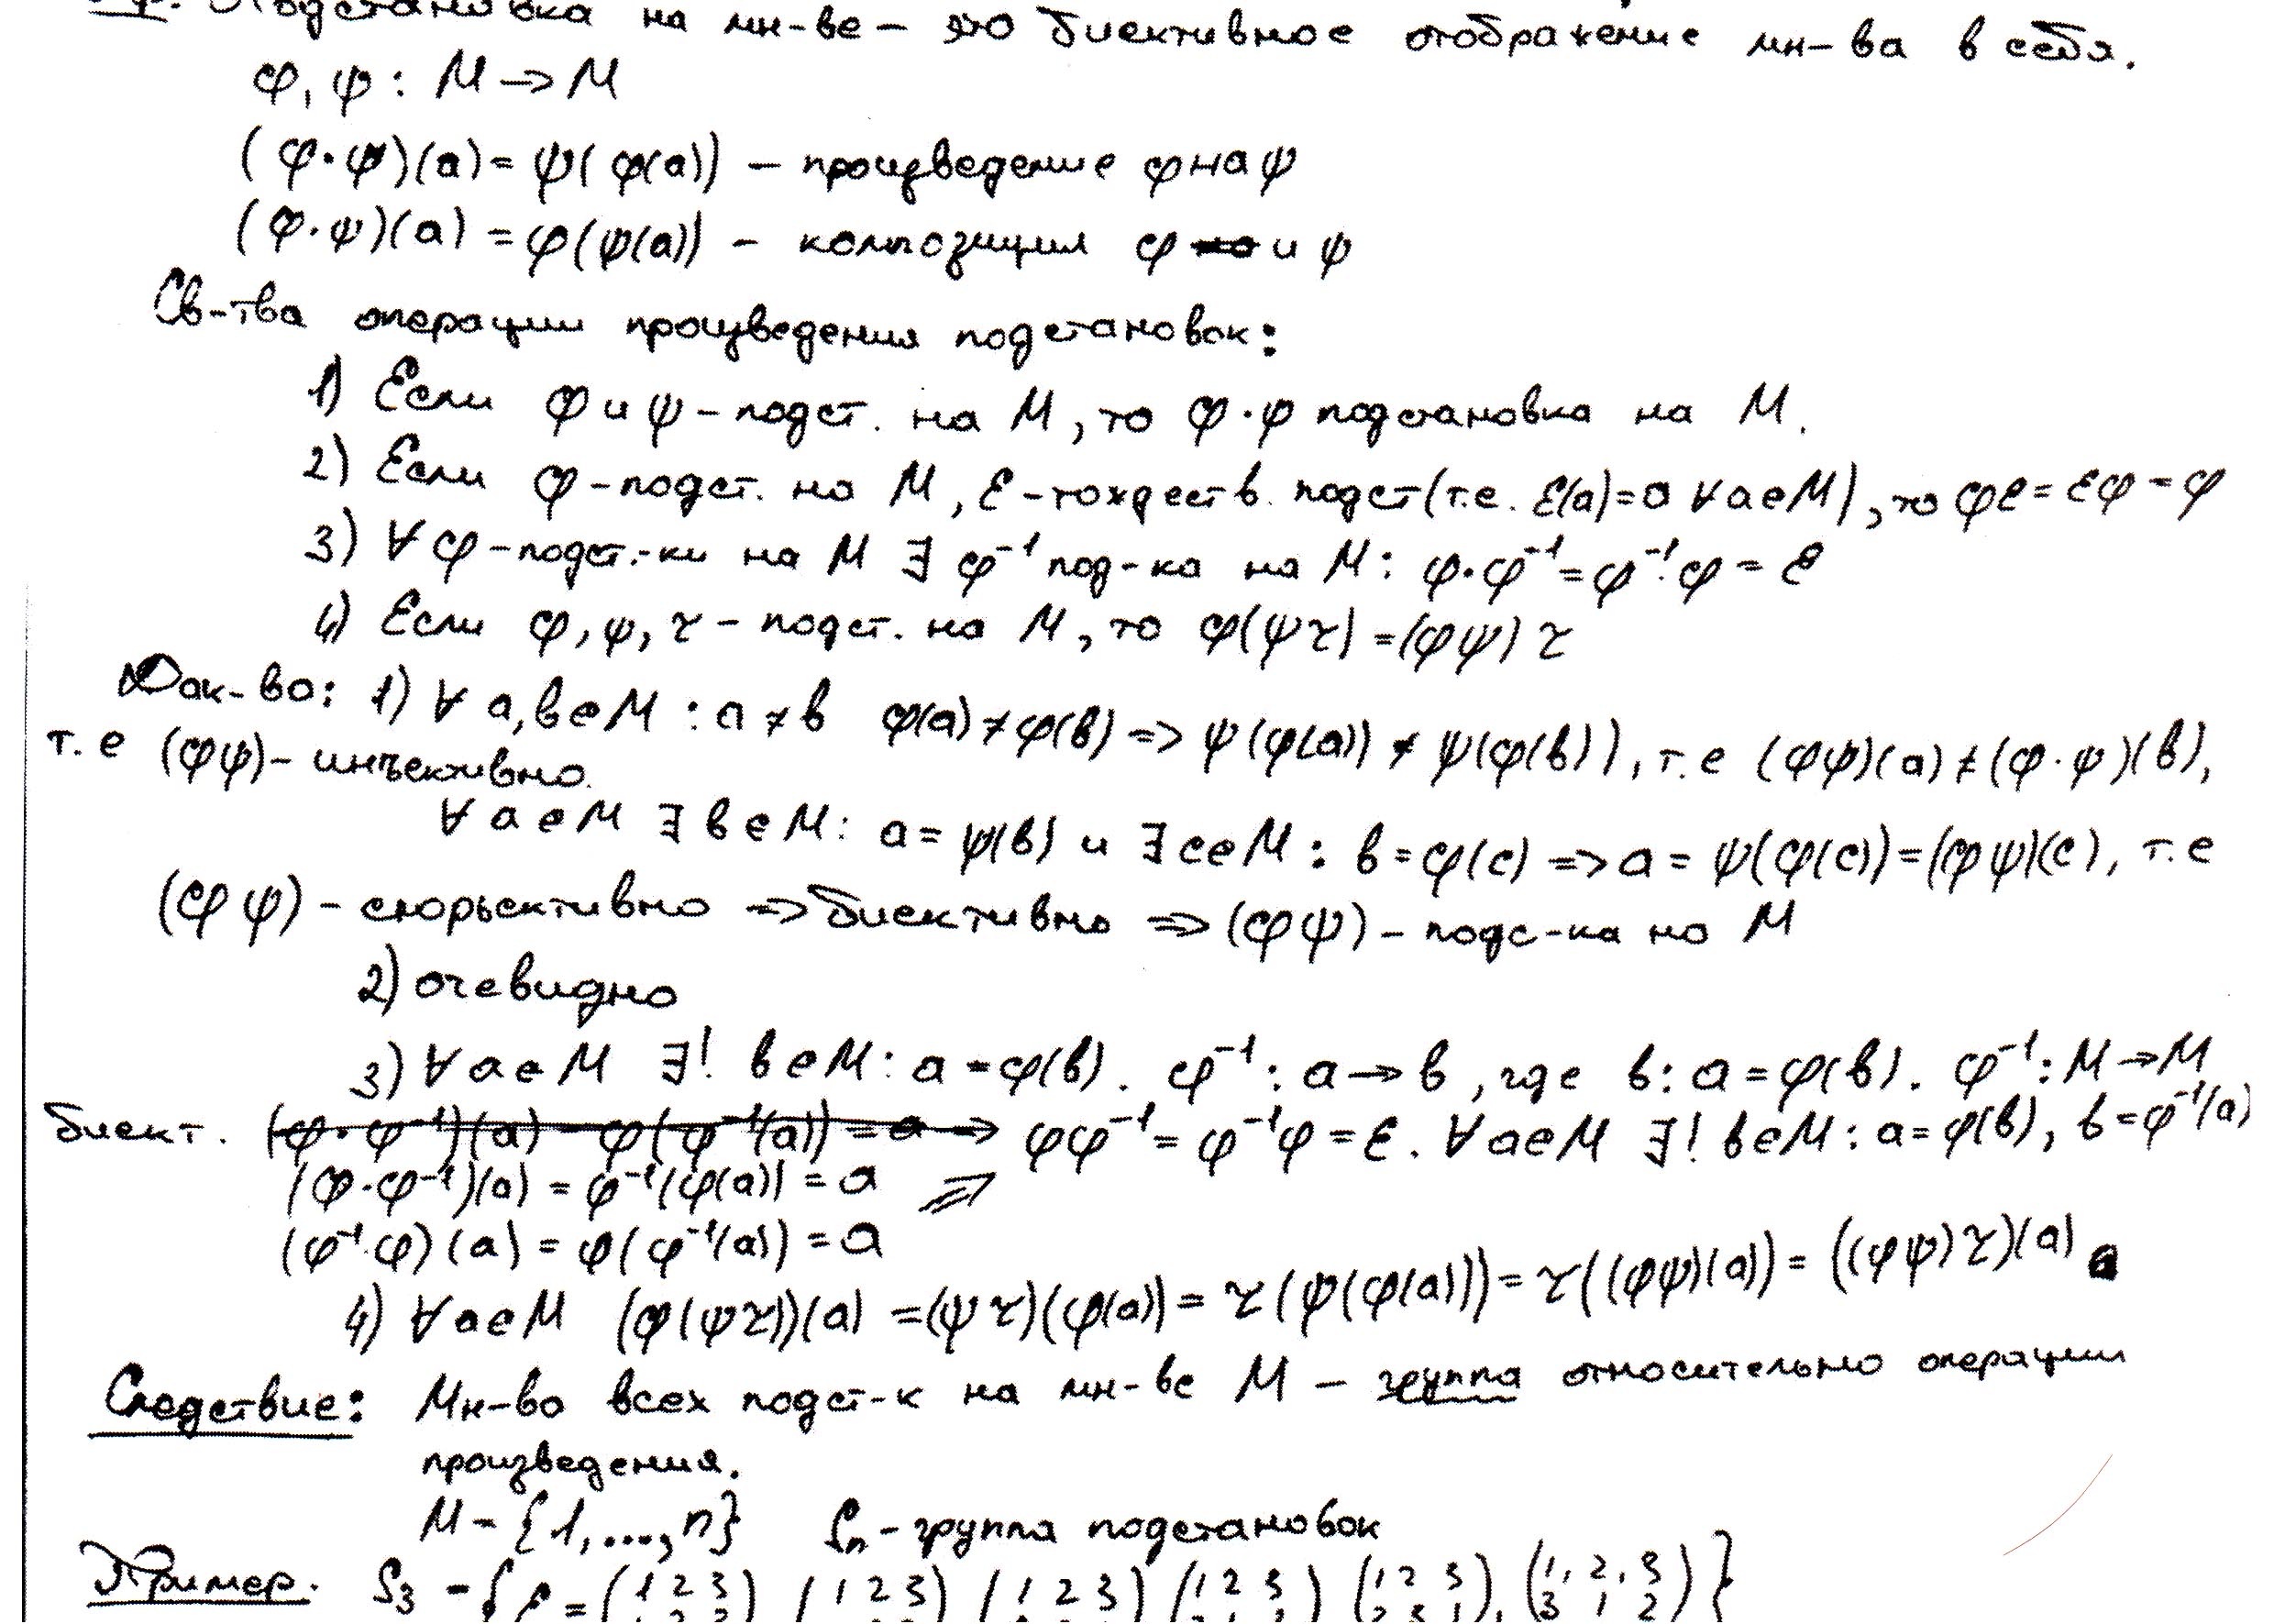 Подстановка на мн-ве – это биективное отображение мн-ва в себя.
φ, ψ : М → М
(φ·ψ)(a) = ψ(φ(a)) – произведение φ на ψ
(φ·ψ)(a) = φ(ψ(a)) – композиция φ и ψ
Св-тва операции произведения подстановок:
1) Если φ и ψ – подст. на М, то φ·φ подстановка на М.
2) Если φ – подст. на М, ε – тождеств. подст (т.е. ε(a)=a ∀ a∈M), то φε = εφ = φ
3) ∀ φ – подст.-ки на М ∃ φ⁻¹ под-ка на М: φ·φ⁻¹ = φ⁻¹·φ = ε
4) Если φ, ψ, τ – подст. на М, то φ(ψτ) = (φψ)τ
Док-во: 1) ∀ a, в∈M : a ≠ в φ(a) ≠ φ(в) => ψ(φ(a)) ≠ ψ(φ(в)), т.е (φψ)(a) ≠ (φ·ψ)(в),
т.е (φψ) – инъективно.
∀ a∈M ∃ в∈M: a = ψ(в) и ∃ c∈M : в = φ(c) => a = ψ(φ(c)) = (φψ)(c), т.е
(φψ) – сюрьективно => биективно => (φψ) – подс-ка на М
2) очевидно
3) ∀ a∈M ∃! в∈M: a = φ(в). φ⁻¹ : a → в, где в: a = φ(в). φ⁻¹ : M → M
биект. (φ·φ⁻¹)(a) = φ(φ⁻¹(a)) = a => φφ⁻¹ = φ⁻¹φ = ε. ∀ a∈M ∃! в∈M: a = φ(в), в = φ⁻¹(a)
(φ·φ⁻¹)(a) = φ⁻¹(φ(a)) = a =>
(φ⁻¹·φ)(a) = φ(φ⁻¹(a)) = a
4) ∀ a∈M (φ(ψτ))(a) = (ψτ)(φ(a)) = τ(ψ(φ(a))) = τ((φψ)(a)) = ((φψ)τ)(a)
Следствие: Мн-во всех подст-к на мн-ве М – группа относительно операции
произведения.
М = {1,...,n} Sₙ – группа подстановок
Пример. S₃ = { ε = (1 2 3) (1 2 3) (1 2 3) (1 2 3) (1 2 3), (1, 2, 3) }
3 1 2